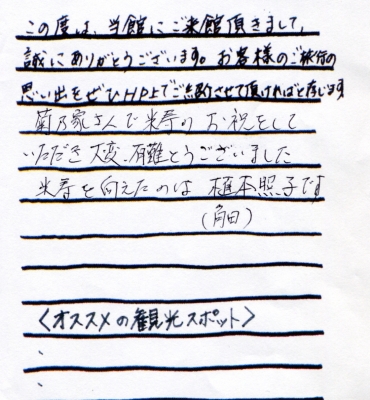 この度は、当館にご来館頂きまして、
誠にありがとうございます。お客様のご旅行の
思い出をぜひHP上でご紹介させて頂ければと存じます
菊乃家さんで米寿のお祝をして
いただき大変有難とうございました
米寿を向えたのは 植本照子です
(角田)
〈オススメの観光スポット〉
・
・